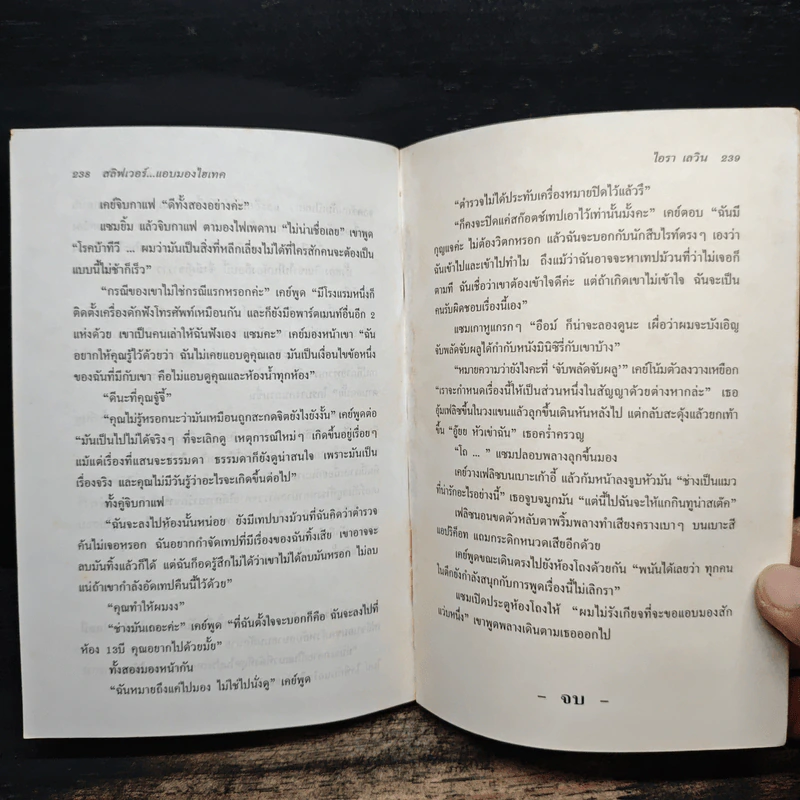 238 สลิฟเวอร์...แอบมองไฮเทค
เคย์จิบกาแฟ “ดีทั้งสองอย่างค่ะ”
แซมยิ้ม แล้วจิบกาแฟ ตามองไฟเพดาน “ไม่น่าเชื่อเลย” เขาพูด
“โรคบ้าทีวี ... ผมว่ามันเป็นสิ่งที่หลีกเลี่ยงไม่ได้ที่ใครสักคนจะต้องเป็น
แบบนี้ไม่ช้าก็เร็ว”
“กรณีของเขาไม่ใช่กรณีแรกหรอกค่ะ” เคย์พูด “มีโรงแรมหนึ่งก็
ติดตั้งเครื่องดักฟังโทรศัพท์เหมือนกัน และก็ยังมีอพาร์ตเมนท์อื่นอีก 2
แห่งด้วย เขาเป็นคนเล่าให้ฉันฟังเอง แซมคะ” เคย์มองหน้าเขา “ฉัน
อยากให้คุณรู้ไว้ด้วยว่า ฉันไม่เคยแอบดูคุณเลย มันเป็นเงื่อนไขข้อหนึ่ง
ของฉันที่มีกับเขา คือไม่แอบดูคุณและห้องน้ำทุกห้อง”
“ดีนะที่คุณจู้จี้”
“คุณไม่รู้หรอกนะว่ามันเหมือนถูกสะกดจิตยังไงยังงั้น” เคย์พูดต่อ
“มันเป็นไปไม่ได้จริงๆ ที่จะเลิกดู เหตุการณ์ใหม่ๆ เกิดขึ้นอยู่เรื่อยๆ
แม้แต่เรื่องที่แสนจะธรรมดา ธรรมดาก็ยังดูน่าสนใจ เพราะมันเป็น
เรื่องจริง และคุณไม่มีวันรู้ว่าอะไรจะเกิดขึ้นต่อไป”
ทั้งคู่จิบกาแฟ
“ฉันจะลงไปห้องนั้นหน่อย ยังมีเทปบางม้วนที่ฉันคิดว่าตำรวจ
ค้นไม่เจอหรอก ฉันอยากกำจัดเทปที่มีเรื่องของฉันทิ้งเสีย เขาอาจจะ
ลบมันทิ้งแล้วก็ได้ แต่ฉันก็อดรู้สึกไม่ได้ว่าเขาไม่ได้ลบมันหรอก ไม่ลบ
แน่ถ้าเขากำลังอัดเทปคืนนี้ไว้ด้วย”
“คุณทำให้ผมงง”
“ช่างมันเถอะค่ะ” เคย์พูด “ที่ฉันตั้งใจจะบอกก็คือ ฉันจะลงไปที่
ห้อง 13บี คุณอยากไปด้วยมั้ย”
ทั้งสองมองหน้ากัน
“ฉันหมายถึงแค่ไปมอง ไม่ใช่ไปนั่งดู” เคย์พูด
ไอรา เลวิน 239
“ตำรวจไม่ได้ประทับเครื่องหมายปิดไว้แล้วรึ”
“ก็คงจะปิดแค่สก๊อตช์เทปเอาไว้เท่านั้นมั้งคะ” เคย์ตอบ “ฉันมี
กุญแจค่ะ ไม่ต้องวิตกหรอก แล้วฉันจะบอกกับนักสืบไรท์ตรงๆ เองว่า
ฉันเข้าไปและเข้าไปทำไม ถึงแม้ว่าฉันอาจจะหาเทปม้วนที่ว่าไม่เจอก็
ตามที ฉันเชื่อว่าเขาต้องเข้าใจดีค่ะ แต่ถ้าเกิดเขาไม่เข้าใจ ฉันจะเป็น
คนรับผิดชอบเรื่องนี้เอง”
แซมเกาหูแกรกๆ “อืมม์ ก็น่าจะลองดูนะ เผื่อว่าผมจะบังเอิญ
จับพลัดจับผลูได้กำกับหนังมินิซีรี่กับเขาบ้าง”
“หมายความว่ายังไงคะที่ ‘จับพลัดจับผลู’ ” เคย์โน้มตัวลงวางเหยือก
“เราจะกำหนดเรื่องนี้ให้เป็นส่วนหนึ่งในสัญญาด้วยต่างหากล่ะ” เธอ
อุ้มเฟลิซขึ้นในวงแขนแล้วลุกขึ้นเดินหันหลังไป แต่กลับสะดุ้งแล้วยกเท้า
ขึ้น “อู้ยย หัวเข่าฉัน” เธอคร่ำครวญ
“โถ ... ” แซมปลอบพลางลุกขึ้นมอง
เคย์วางเฟลิซบนเบาะเก้าอี้ แล้วก้มหน้าลงจูบหัวมัน “ช่างเป็นแมว
ที่น่ารักอะไรอย่างนี้” เธอจูบจมูกมัน “แต่นี้ไปฉันจะให้แกกินทูน่าสเต๊ค”
เฟลิซนอนขดตัวหลับตาพริ้มพลางทำเสียงครางเบาๆ บนเบาะสี
แอปริค็อท แถมกระดิกหนวดเสียอีกด้วย
เคย์พูดขณะเดินตรงไปยังห้องโถงด้วยกัน “พนันได้เลยว่า ทุกคน
ในตึกยังกำลังสนุกกับการพูดเรื่องนี้ไม่เลิกรา”
แซมเปิดประตูห้องโถงให้ “ผมไม่รังเกียจที่จะขอแอบมองสัก
แว่บหนึ่ง” เขาพูดพลางเดินตามเธอออกไป
- จบ -